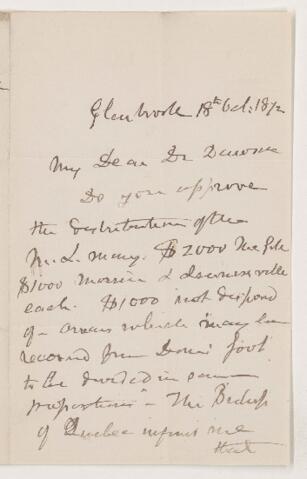 Glenbrook 18th Oct: 1872
My Dear Dr Dawson
Do you approve
the distribution of the
M. L. money. $2000 McGill
$1000 Morrin &
each. $1000 not disposed
of - arrears which may be
recovered from
to be divided in same
proportions - The Bishop
of Quebec informs me
that